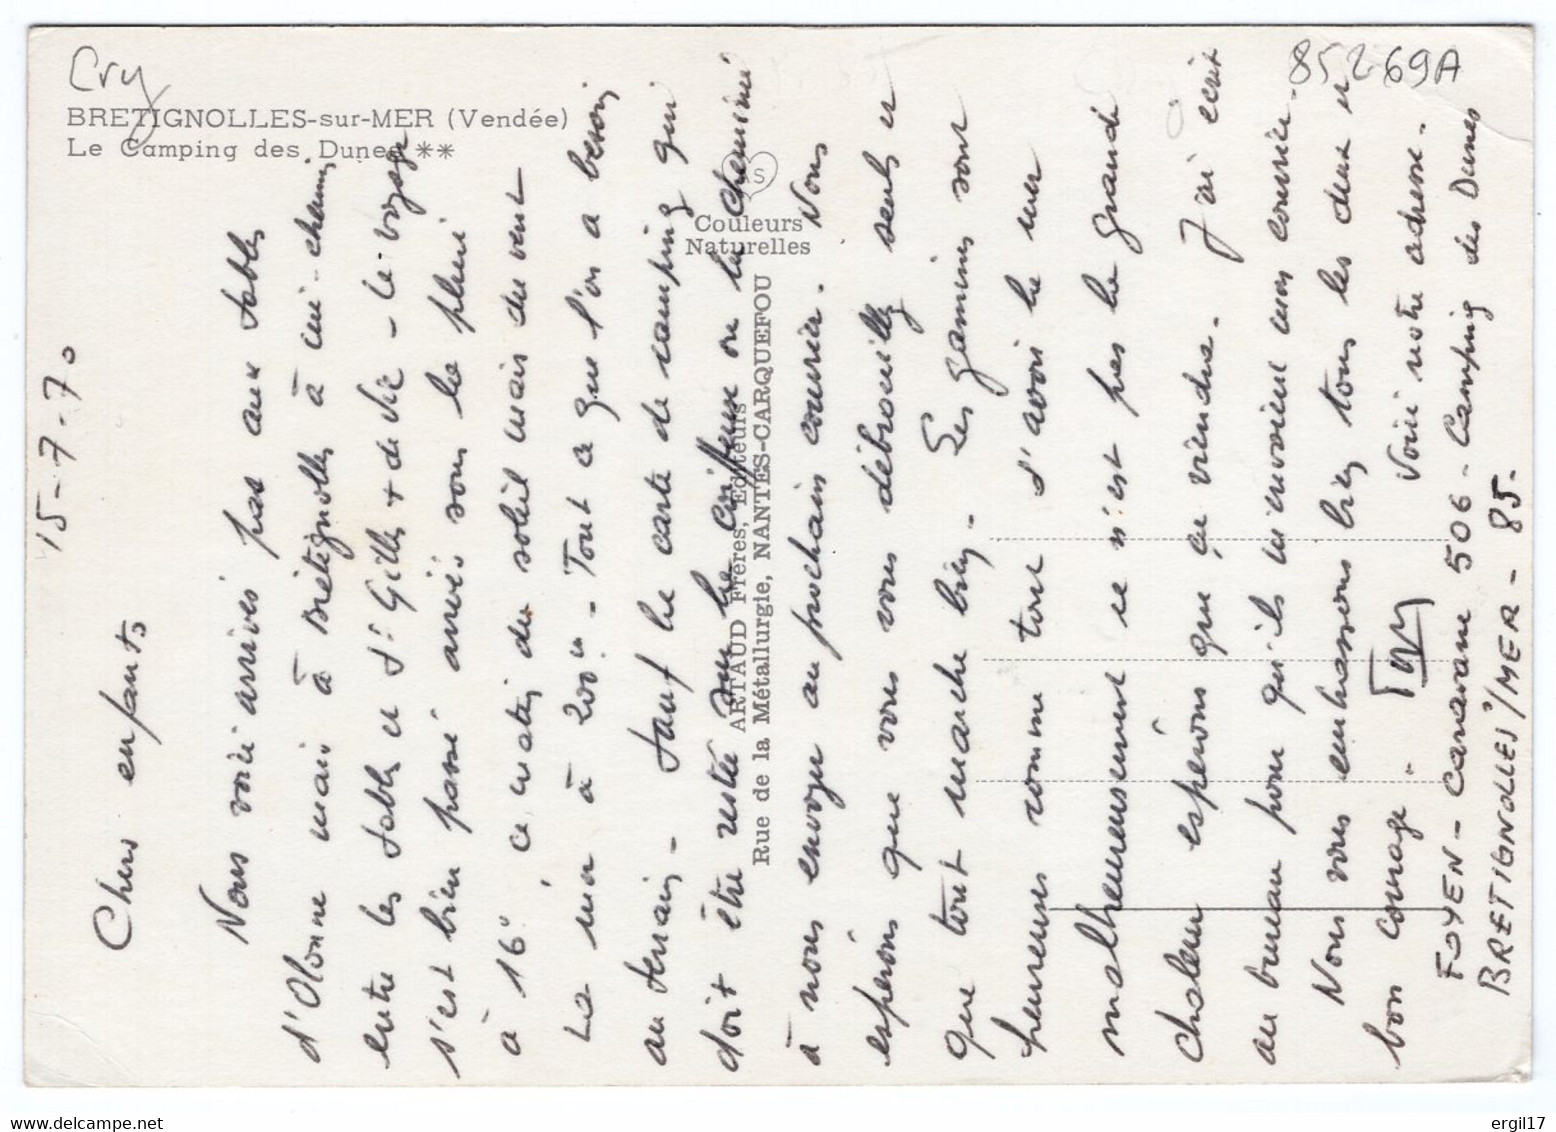 Cry
85269A
BRETIGNOLLES-sur-MER (Vendée)
Le Camping des Dunes **
S
Couleurs
Naturelles
ARTAUD Frères, Editeurs
Rue de la Métallurgie, NANTES-CARQUEFOU
15-7-70
Chers enfants
Nous voici arrivés pas aux Sables
d'Olonne mais à Brétignolles à mi-chemin
entre les Sables et St Gilles + de Vie - le voyage
s'est bien passé arrivés sous la pluie
à 16h. ce matin du soleil mais du vent
La mer à 200m - Tout ce que l'on a besoin
au terrain - Sauf la carte de camping qui
doit être restée sur le coiffeur ou la cheminé
à nous envoyer au prochain courrier. Nous
espérons que vous vous débrouillez seuls et
que tout marche bien. Les gamines sont
heureuses comme tout d'avoir la mer
malheureusement ce n'est pas la grande
chaleur espérons que ça viendra. J'ai écrit
au bureau pour qu'ils m'envoient mon courrier.
Nous vous embrassons bien tous les deux et
bon courage. Tony Voici notre adresse.
FOYEN - Caravane 506 - Camping des Dunes
BRETIGNOLLES S/MER - 85.
ergil17